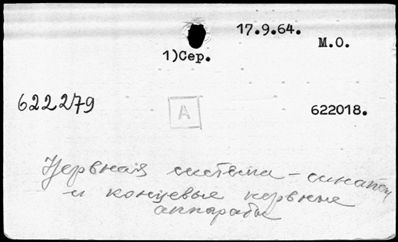 17.9.64.
М.О.
1)Сер.
622279
А
622018.
Нервная система - синапсы
и концевые нервные
аппараты